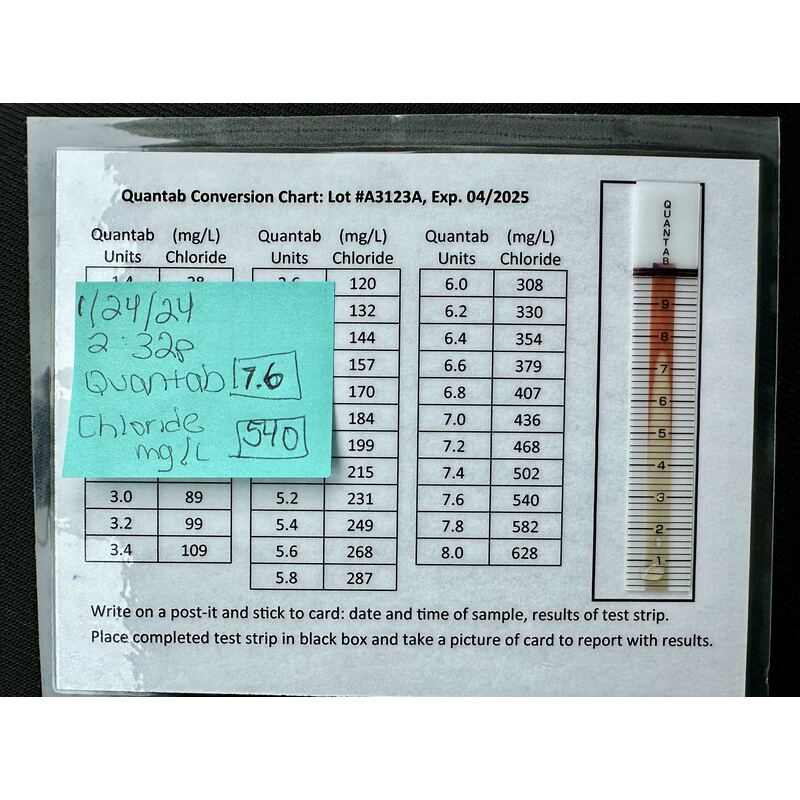 Quantab Conversion Chart: Lot #A3123A, Exp. 04/2025
Quantab (mg/L) Quantab (mg/L) Quantab (mg/L)
Units Chloride Units Chloride Units Chloride
120 6.0 308
132 6.2 330
144 6.4 354
157 6.6 379
170 6.8 407
184 7.0 436
199 7.2 468
215 7.4 502
3.0 89 5.2 231 7.6 540
3.2 99 5.4 249 7.8 582
3.4 109 5.6 268 8.0 628
5.8 287
1/24/24
2:32p
Quantab 7.6
Chloride
mg/L 540
QUANTAB
9
8
7
6
5
4
3
2
1
Write on a post-it and stick to card: date and time of sample, results of test strip.
Place completed test strip in black box and take a picture of card to report with results.